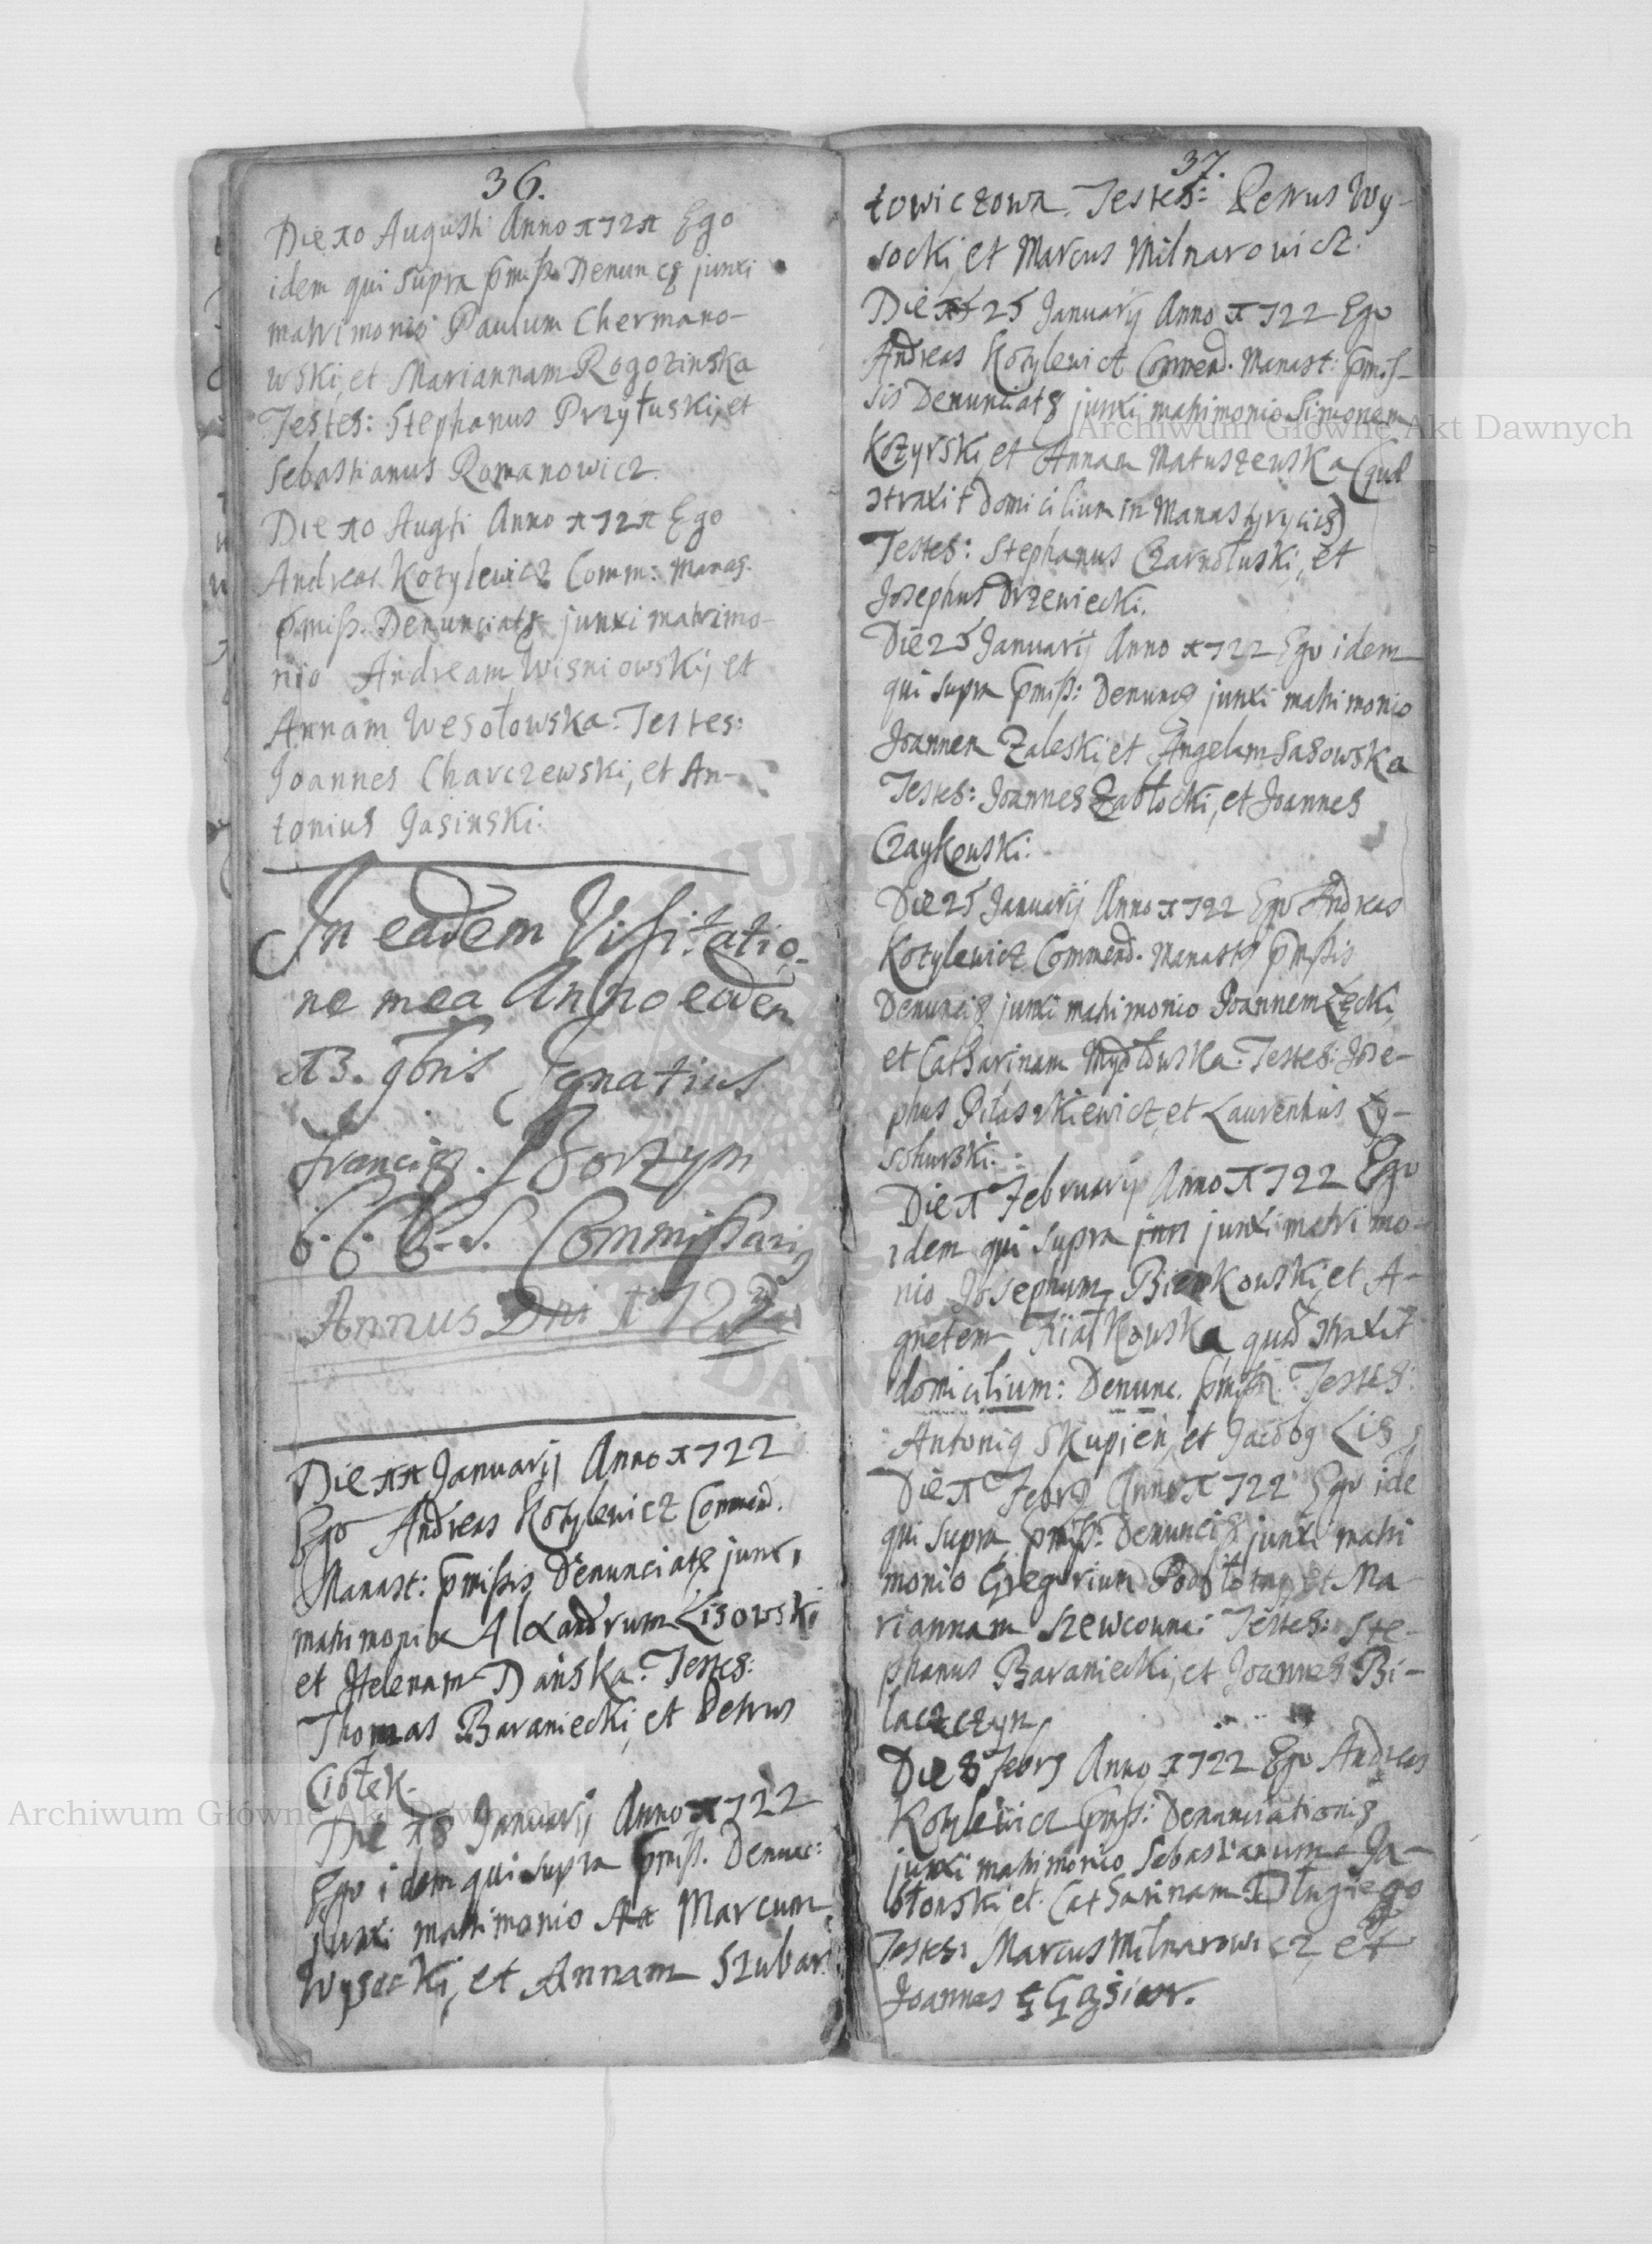 36.
Die 10 Augusti Anno 1721 Ego
idem qui supra p̄miss. Denunc9 junxi
matrimonio Paulum Chermano-
wski, et Mariannam Rogozinska
Testes: Stephanus Przyłuski, et
Sebastianus Romanowicz.
Die 10 Augti Anno 1721 Ego
Andreas Kozylewicz Comm: Manas.
p̄miss. Denunciat9 junxi matrimo-
nio Andream Wisniowskij et
Annam Wesołowska. Testes:
Joannes Charczewski, et An-
tonius Gasinski.
In eadem Visitatio-
ne mea Anno eodem
13. 9bris Ignatius
Francis. Borzym
Commissari9
Annus Dni 1722
Die 11 Januarij Anno 1722
Ego Andreas Kozylewicz Commend.
Manast: p̄missis Denunciat9 junxi
matrimonio Alexandrum Lisowski
et Helenam Dańska. Testes:
Thomas Baraniecki, et Petrus
Ciołek.
Die 18 Januarij Anno 1722
Ego idem qui supra p̄miss. Denunc:
junxi matrimonio Marcum
Wysocki, et Annam Szubar
37.
łowiczowa. Testes: Petrus Wy-
socki, et Marcus Milnarowicz.
Die 25 Januarij Anno 1722 Ego
Andreas Kozylewicz Commend. Manast: p̄mis-
sis Denunciat9 junxi matrimonio Simonem
Kozyrski et Annam Matuszewska (quæ
ɔtraxit domicilium in Manastyryci9)
Testes: Stephanus Czarnołuski, et
Josephus Drzewiecki.
Die 25 Januarij Anno 1722 Ego idem
qui supra p̄miss: Denunc9 junxi matrimonio
Joannem Zaleski, et Angelam Sasowska
Testes: Joannes Zabłocki, et Joannes
Czaykowski.
Die 25 Januarij Anno 1722 Ego Andreas
Kozylewicz Commend. Manast9 p̄missis
Denunci9 junxi matrimonio Joannem Łęcki,
et Catharinam Mydłowska. Testes: Jose-
phus Piłaszkiewicz, et Laurentius Ły-
Die 1 Februarij Anno 1722 Ego
idem qui supra junxi matrimo-
nio Josephum Bienkowski, et A-
gnetem Fiiałkowska quæ ɔtraxit
domicilium: Denunc. p̄miss. Testes:
Antoni9 Skupień, et Jacob9 Lis
Die 1 Febr9 Anno 1722 Ego idē
qui supra p̄miss: Denunci9 junxi matri
monio Gregorium et Ma-
riannam Szewcowna: Testes: Ste-
phanus Baraniecki, et Joannes Bi-
laczczyn
Die 8 Febr9 Anno 1722 Ego Andreas
Kozylewicz p̄miss: Denunciationis
junxi matrimonio Sebastianum Ja-
błonski, et Catharinam Długiego
Testes: Marcus Milnarowicz, et
Joannes Gąsior.
Archiwum Główne Akt Dawnych
Archiwum Główne Akt Dawnych